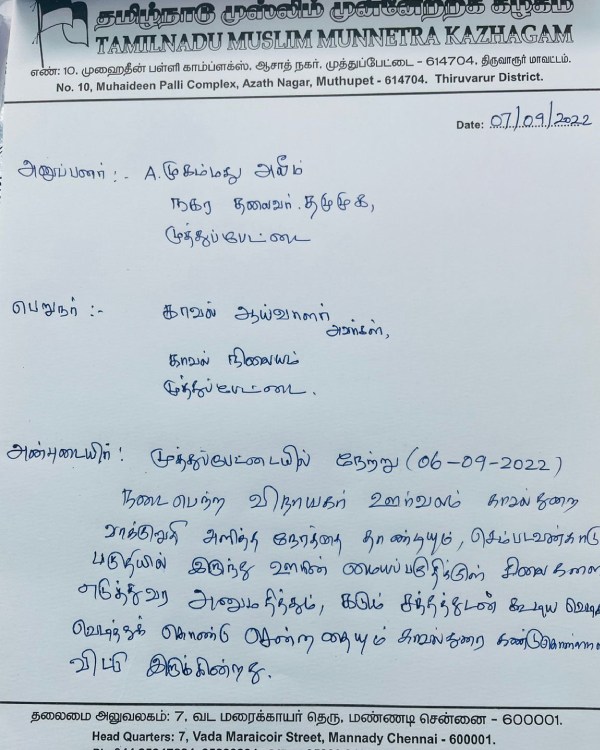 தமிழ்நாடு முஸ்லிம் முன்னேற்றக் கழகம்
TAMILNADU MUSLIM MUNNETRA KAZHAGAM
எண்: 10, முஹைதீன் பள்ளி காம்ப்ளக்ஸ், ஆசாத் நகர், முத்துப்பேட்டை - 614704. திருவாரூர் மாவட்டம்.
No. 10, Muhaideen Palli Complex, Azath Nagar, Muthupet - 614704. Thiruvarur District.
Date: 07/09/2022
அனுப்புனர் :- A.முகம்மது அலீம்
நகர தலைவர். தமுமுக,
முத்துப்பேட்டை
பெறுநர் :- காவல் ஆய்வாளர்
அவர்கள்,
காவல் நிலையம்
முத்துப்பேட்டை.
அன்புடையீர்! முத்துப்பேட்டையில் நேற்று (06-09-2022)
நடைபெற்ற விநாயகர் ஊர்வலம் காவல்துறை
வாக்குறுதி அளித்த நேரத்தை தாண்டியும், செம்படவன்காடு
பகுதியில் இருந்து ஊரின் மையப்பகுதிக்குள் சிலைகளை
எடுத்துவர அனுமதித்தும், கடும் சத்தத்துடன் கூடிய வெடி
வெடித்துக் கொண்டு சென்றதையும் காவல்துறை
இருக்கின்றது.
தலைமை அலுவலகம்: 7, வட மரைக்காயர் தெரு, மண்ணடி சென்னை - 600001.
Head Quarters: 7, Vada Maraicoir Street, Mannady Chennai - 600001.